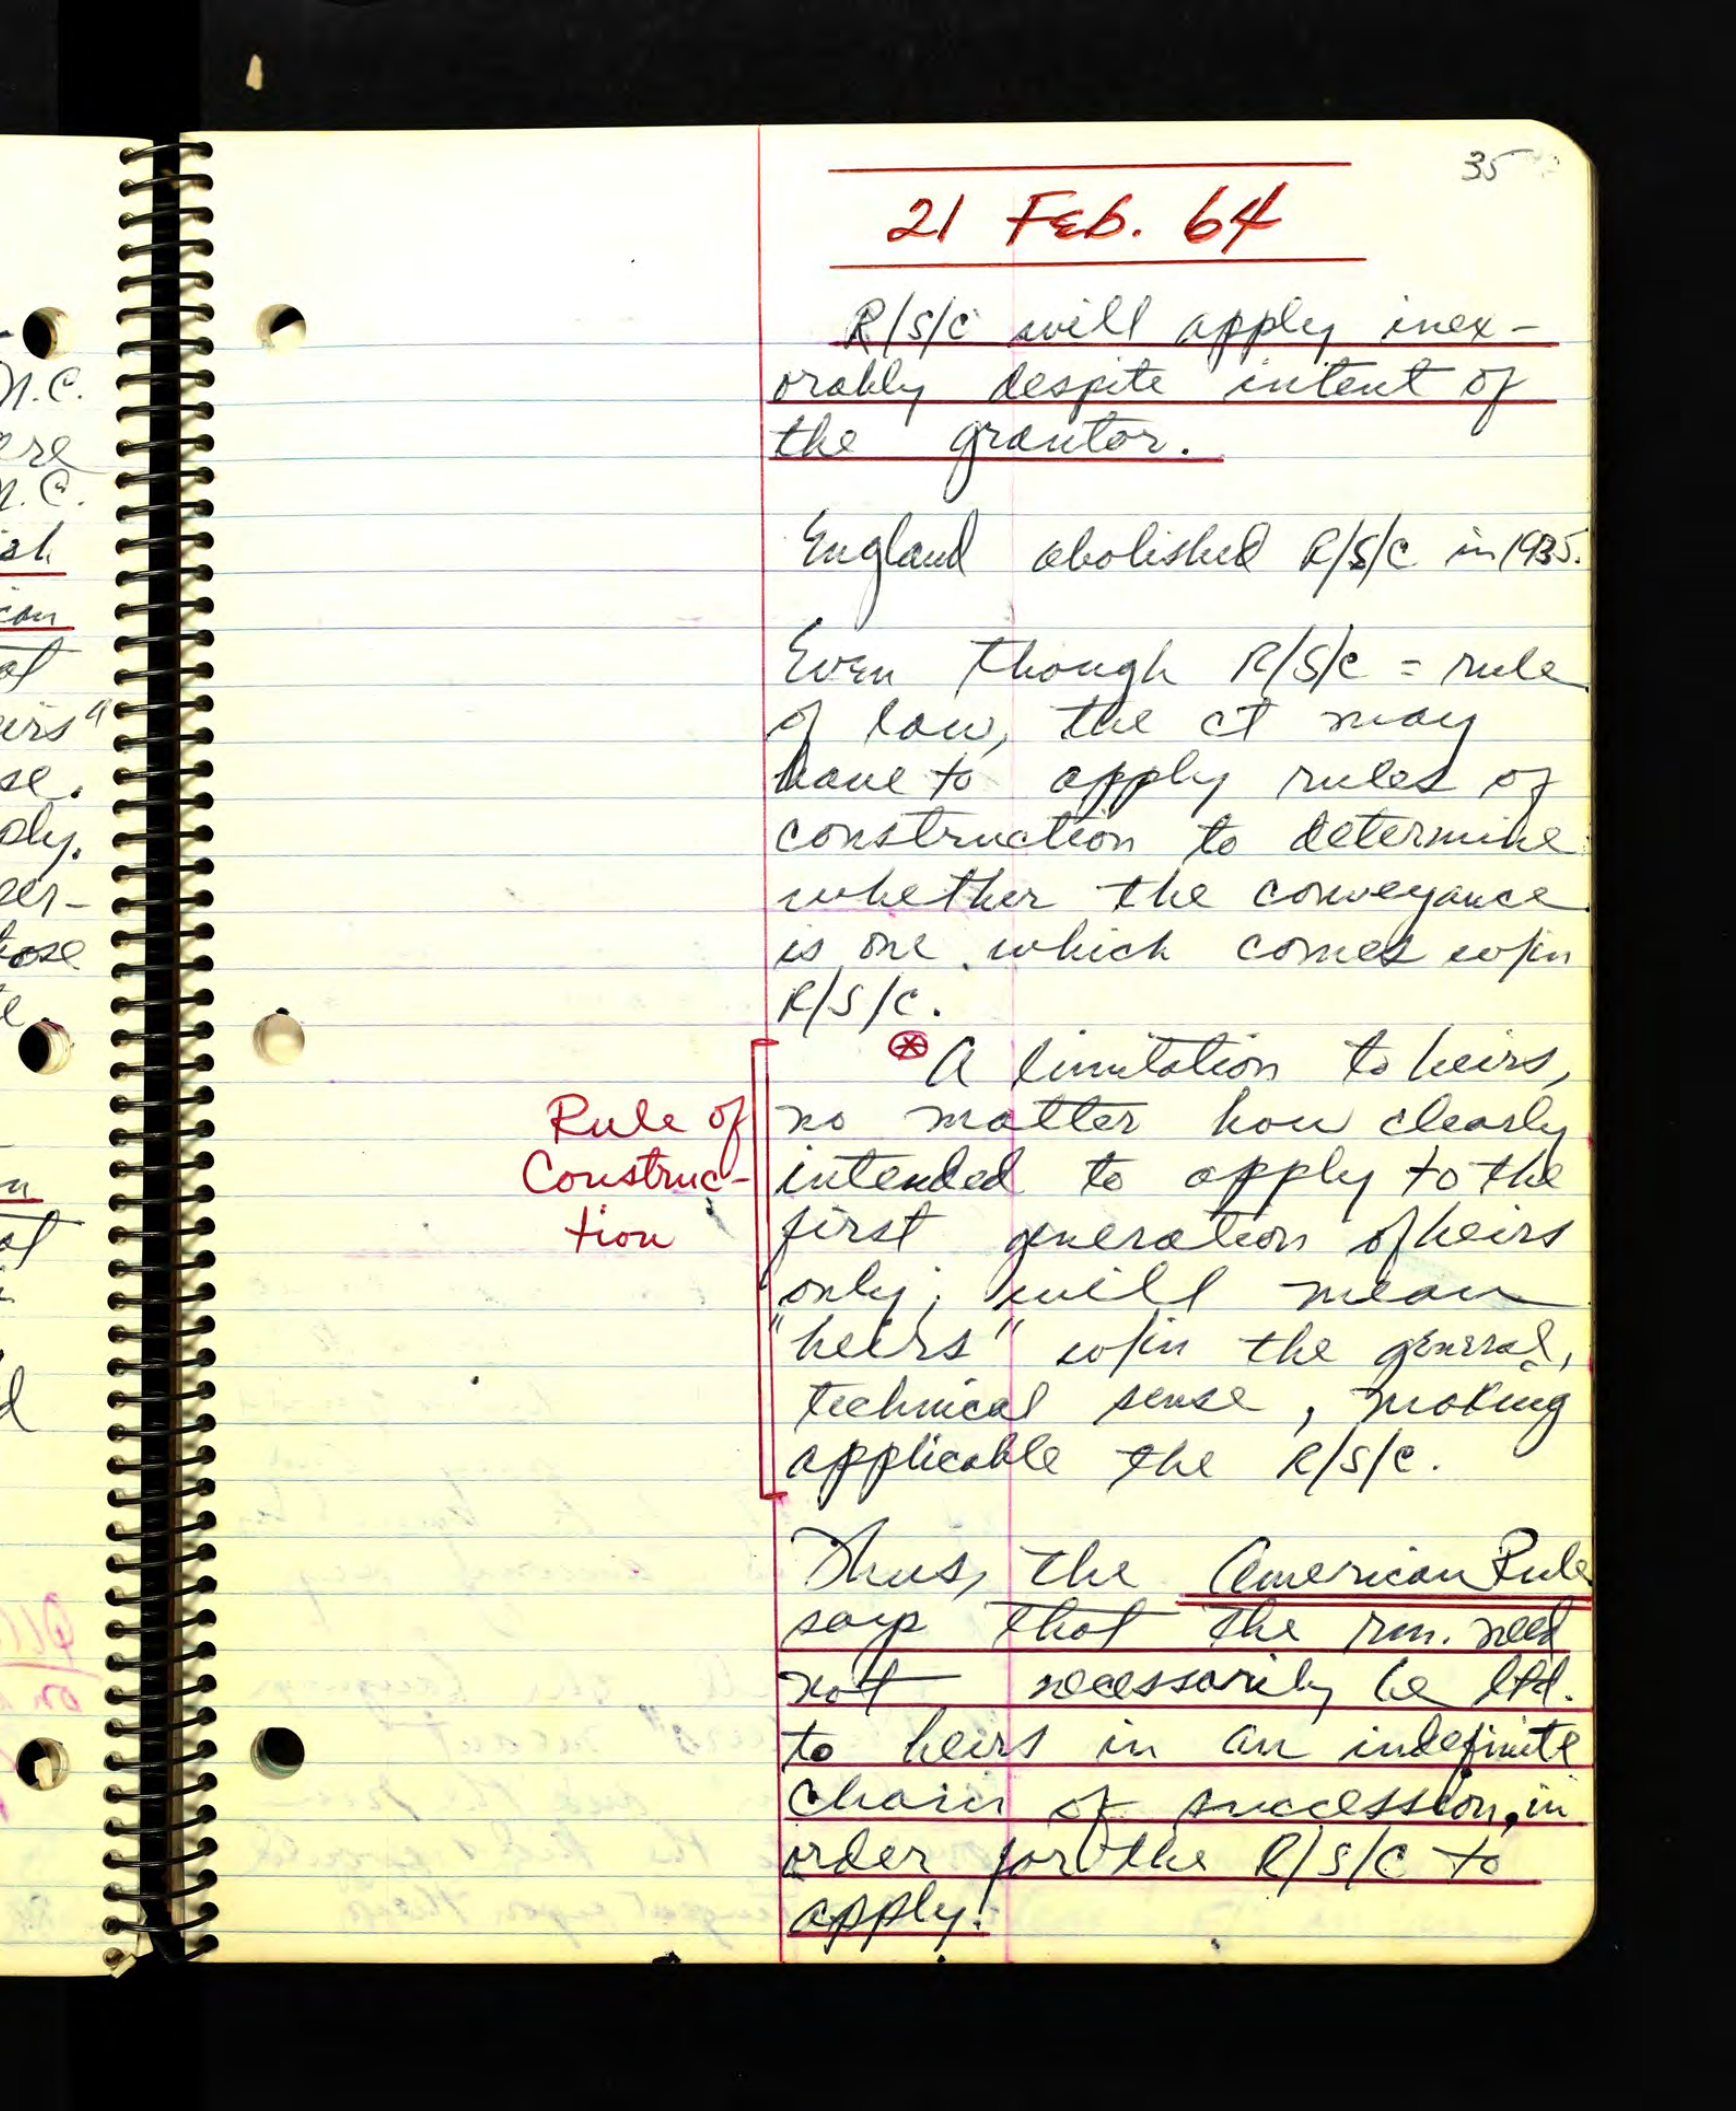 35
21 Feb. 64
R/S/C will apply inex-
orably despite intent of
the grantor.
England abolished R/S/C in 1935.
Even though R/S/C = rule
of law, the ct may
have to apply rules of
construction to determine
whether the conveyance
is one which comes w/in
R/S/C.
Rule of
Construc-
tion
⊛ A limitation to heirs,
no matter how clearly
intended to apply to the
first generation of heirs
only, will mean
"heirs" w/in the general,
technical sense, making
applicable the R/S/C.
Thus, the American Rule
says that the rm. need
not necessarily be ltd.
to heirs in an indefinite
chain of succession, in
order for the R/S/C to
apply.
N.C.
ere
N.C.